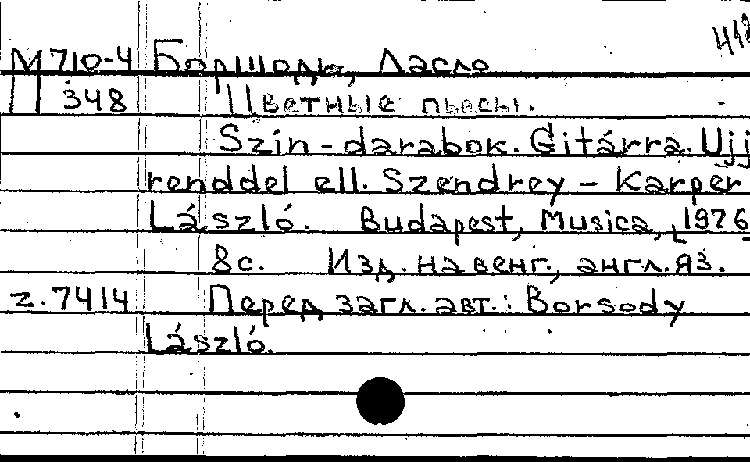 М710-4 Боршоди, Ласло
348 Цветные пьесы.
Szín-darabok. Gitárra. Ujj
renddel ell. Szendrey-Karper
László. Budapest, Musica, [1976
8с. Изд. на венг., англ. яз.
z.7414 Перед загл. авт.: Borsody
László.